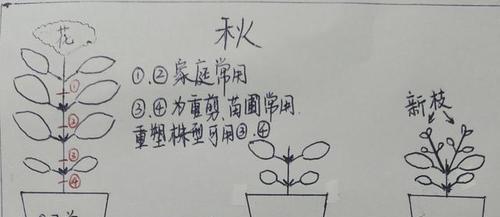 秋
花
①.②家庭常用
③.④为重剪,苗圃常用.
重塑株型可用③.④
新枝
①
②
③
④